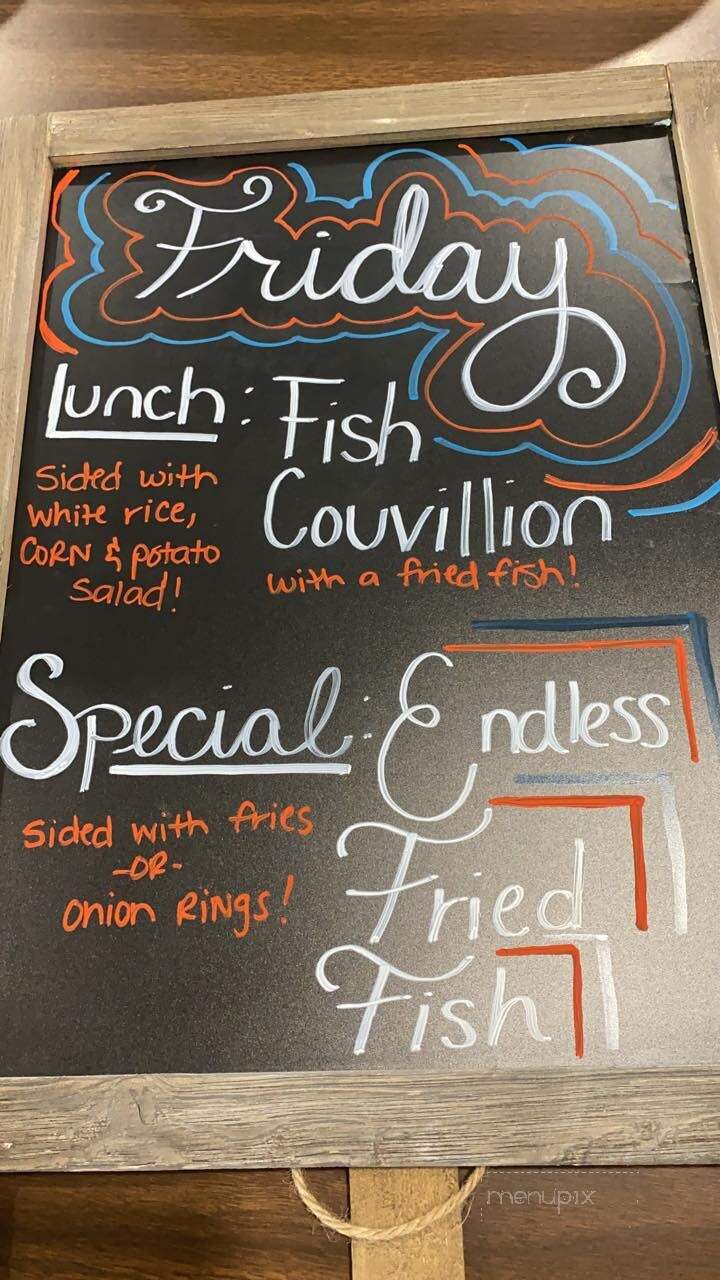 Friday
Lunch: Fish
Couvillion
with a fried fish!
Sided with
white rice,
CORN & potato
Salad!
Special: Endless
Fried
Fish
Sided with fries
-OR-
Onion RiNgs!
menupix